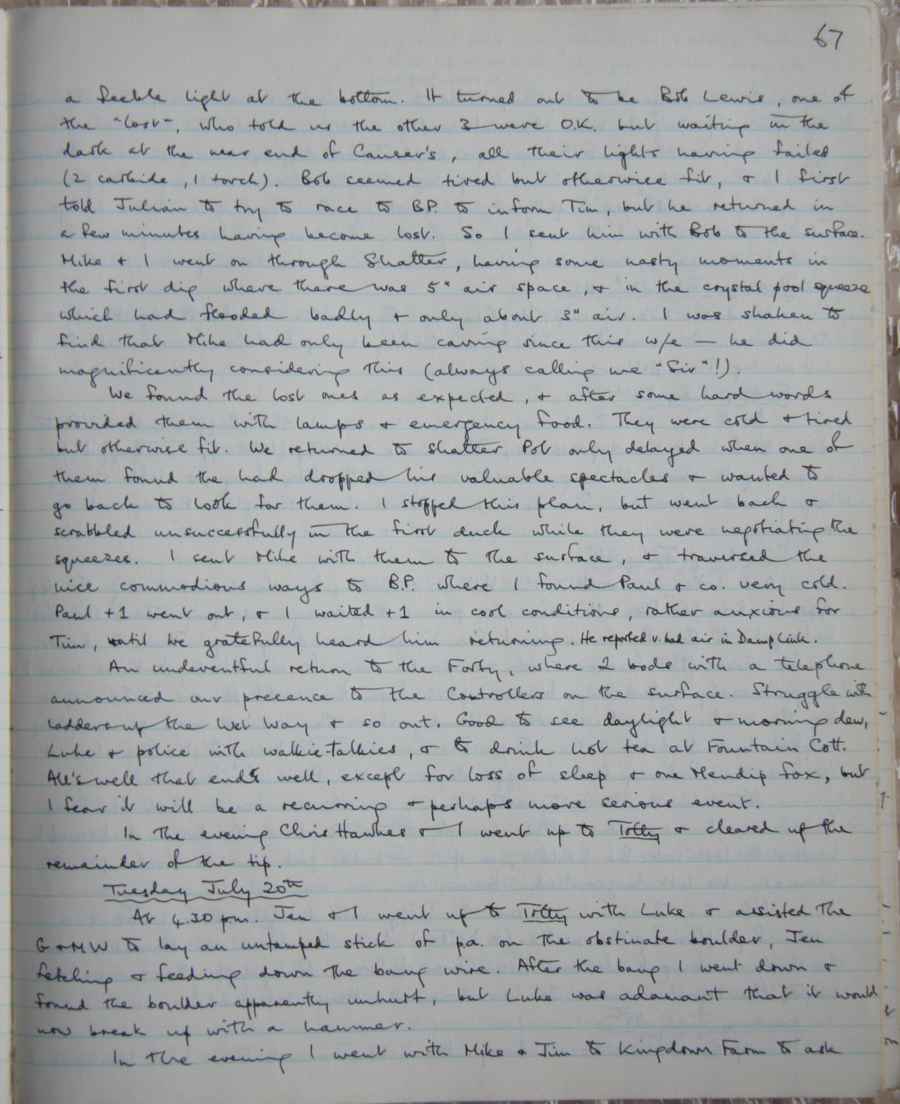 67
a feeble light at the bottom. It turned out to be Bob Lewis, one of
the "lost", who told us the other 3 were O.K. but waiting in the
dark at the near end of Cancer's, all their lights having failed
(2 carbide, 1 torch). Bob seemed tired but otherwise fit, & I first
told Julian to try to race to B.P. to inform Tim, but he returned in
a few minutes having become lost. So I sent him with Bob to the surface.
Mike & I went on through Shatter, having some nasty moments in
the first dig where there was 5" air space, & in the crystal pool squeeze
which had flooded badly & only about 3" air. I was shaken to
find that Mike had only been caving since this w/e — he did
magnificently considering this (always calling me "Sir"!).
We found the lost ones as expected, & after some hard words
provided them with lamps & emergency food. They were cold & tired
but otherwise fit. We returned to Shatter Pot only delayed when one of
them found he had dropped his valuable spectacles & wanted to
go back to look for them. I stopped this plan, but went back &
scrabbled unsuccessfully in the first duck while they were negotiating the
squeezes. I sent Mike with them to the surface, & traversed the
nice commodious ways to B.P. where I found Paul & co. very cold.
Paul + 1 went out, & I waited + 1 in cool conditions, rather anxious for
Tim, until we gratefully heard him returning. He reported v. bad air in Damp Link.
An undeventful return to the Forty, where 2 bods with a telephone
announced our presence to the Controllers on the surface. Struggle with
ladders up the Wet Way & so out. Good to see daylight & morning dew,
Luke & police with walkie-talkies, & to drink hot tea at Fountain Cott.
All's well that ends well, except for loss of sleep & one Mendip fox, but
I fear it will be a recurring & perhaps more serious event.
In the evening Chris Hawkes & I went up to Totty & cleared up the
remainder of the tip.
Tuesday July 20th
At 4.30 pm. Jen & I went up to Totty with Luke & assisted the
G & MW to lay an untamped stick of p.a. on the obstinate boulder, Jen
fetching & feeding down the bang wire. After the bang I went down &
found the boulder apparently unhurt, but Luke was adamant that it would
now break up with a hammer.
In the evening I went with Mike & Jim to Kingdown Farm to ask